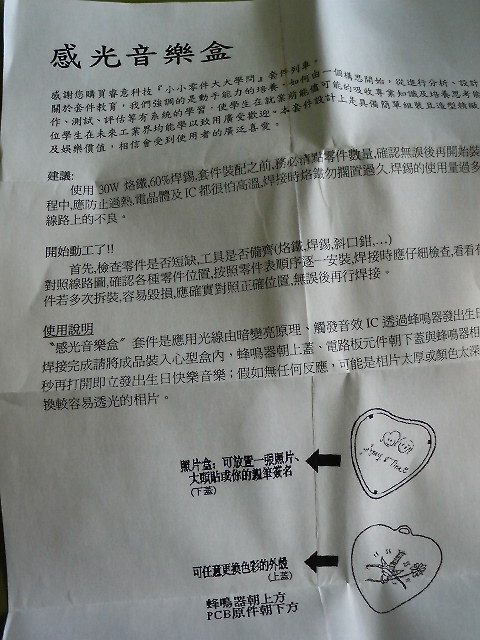 感光音樂盒
感謝您購買睿意科技『小小零件大大學問』套件列車。
關於套件教育，我們強調的是動手能力的培養。如何由一個構思開始，從進行分析、設計
作、測試、評估等有系統的學習，使學生在就業前能儘可能的吸收專業知識及培養思考能
位學生在未來工業界均能學以致用廣受歡迎。本套件設計上是具備簡單組裝且造型精緻
及娛樂價值，相信會受到使用者的廣泛喜愛。
建議:
使用 30W 烙鐵,60%焊錫,套件裝配之前,務必清點零件數量,確認無誤後再開始裝
程中,應防止過熱,電晶體及 IC 都很怕高溫,焊接時烙鐵勿擱置過久.焊錫的使用量過多
線路上的不良。
開始動工了!!
首先,檢查零件是否短缺,工具是否備齊(烙鐵,焊錫,斜口鉗,...)
對照線路圖,確認各種零件位置,按照零件表順序逐一安裝,焊接時應仔細檢查,看看在
件若多次拆裝,容易毀損,應確實對照正確位置,無誤後再行焊接。
使用說明
〝感光音樂盒〞套件是應用光線由暗變亮原理、觸發音效 IC 透過蜂鳴器發出生日
焊接完成請將成品裝入心型盒內，蜂鳴器朝上蓋、電路板元件朝下蓋與蜂鳴器相
秒再打開即立發出生日快樂音樂；假如無任何反應，可能是相片太厚或顏色太深
換較容易透光的相片。
照片盒：可放置一張照片、
大頭貼或你的親筆簽名
(下蓋)
可任意更換色彩的外殼
(上蓋)
蜂鳴器朝上方
PCB原件朝下方